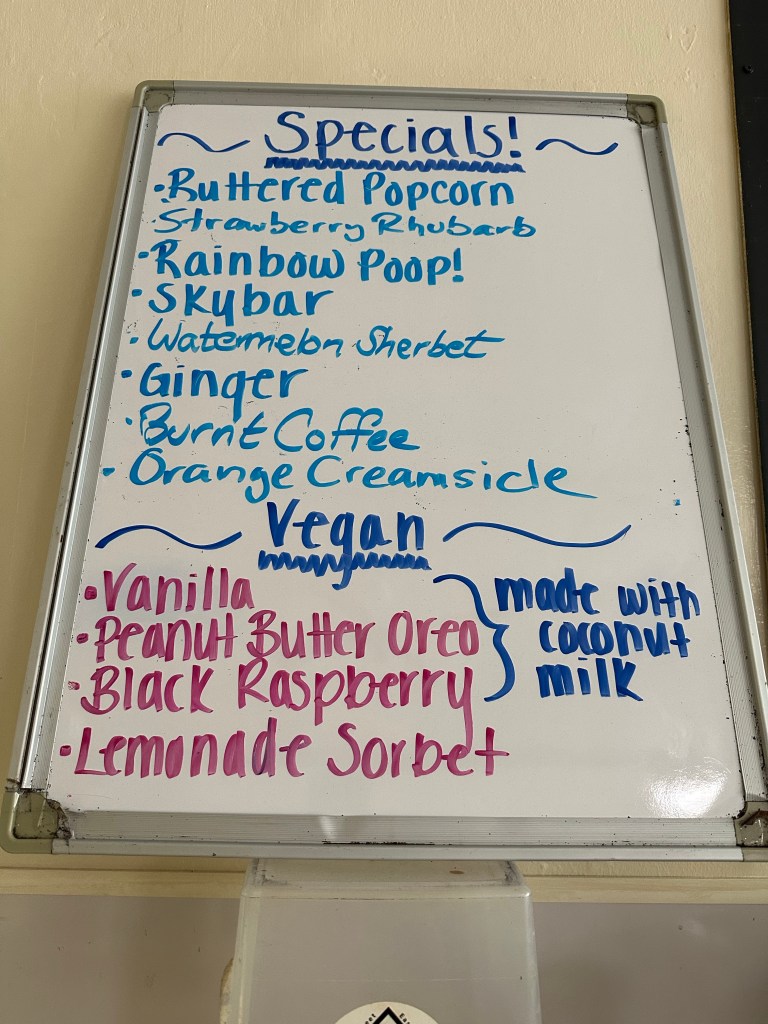 Specials!
• Buttered Popcorn
• Strawberry Rhubarb
• Rainbow Poop!
• Skybar
• Watermelon Sherbet
• Ginger
• Burnt Coffee
• Orange Creamsicle
Vegan
• Vanilla
• Peanut Butter Oreo
• Black Raspberry
made with
coconut
milk
• Lemonade Sorbet